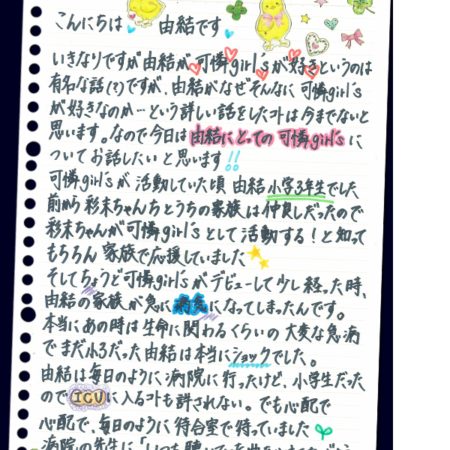 こんにちは 由結です
いきなりですが由結が可憐girl'sが好きというのは
有名な話(?)ですが、由結がなぜそんなに可憐girl's
が好きなのか…という詳しい話をしたコトは今までないと
思います。なので今日は由結にとっての可憐girl'sに
ついてお話したいと思います!!
可憐girl'sが活動していた頃 由結小学3年生でした
前から彩未ちゃんとうちの家族は仲良しだったので
彩未ちゃんが可憐girl'sとして活動する!と知って
もちろん家族で応援していました
そしてちょうど可憐girl'sがデビューして少し経った時、
由結の家族が急に病気になってしまったんです。
本当にあの時は生命に関わるくらいの大変な急病
でまだ小3だった由結は本当にショックでした。
由結は毎日のように病院に行ったけど、小学生だった
のでICUに入るコトも許されない。でも心配で
心配で、毎日のように待合室で待っていました
病院の先生に「いつも聴いていた